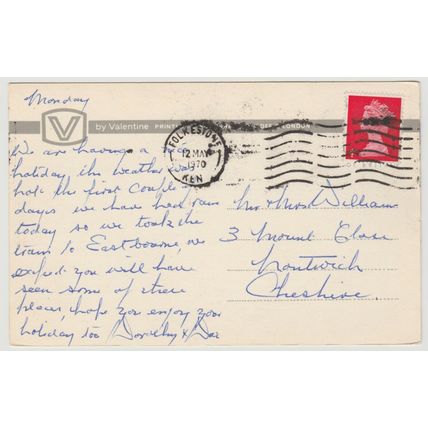 Monday
V
by Valentine
LONDON
FOLKESTONE
12 MAY
1970
KEN
We are having a nice
holiday, the weather was
hot the first couple
days we have had rain
today so we took the
train to Eastbourne, we
expect you will have
seen some of these
places, hope you enjoy your
holiday too Dorothy &
Mr & Mrs William
3 Mount Close
Nantwich
Cheshire.